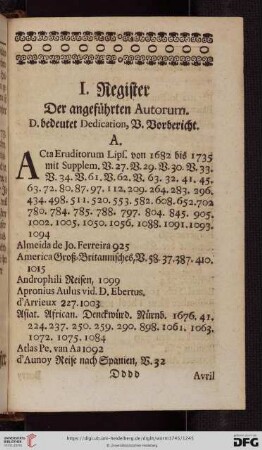 I. Register
Der angeführten Autorum.
D. bedeutet Dedication, V. Vorbericht.
A.
ACta Eruditorum Lipſ. von 1682 bis 1735
mit Supplem. V. 27. V. 29. V. 30. V. 33.
V. 34. V. 61. V. 62. V. 63. 32. 41. 45.
63. 72. 80. 87. 97. 112. 209. 264. 283. 296.
434. 498. 511. 520. 553. 582. 608. 652. 702
780. 784. 785. 788. 797. 804. 845. 905.
1002. 1005. 1050. 1056. 1088. 1091. 1093.
1094
Almeida de Jo. Ferreira 925
America Groß-Britannisches, V. 58. 37. 387. 410.
1015
Androphili Reisen, 1099
Apronius Aulus vid. D. Ebertus.
d'Arrieux 227. 1003
Asiat. African. Denckwürd. Nürnb. 1676. 41.
224. 237. 250. 259. 290. 898. 1061. 1063.
1072. 1075. 1084
Atlas Pe. van Aa 1092
d'Aunoy Reise nach Spanien, V. 32
Dddd Avril
UNIVERSITÄTS-
BIBLIOTHEK
HEIDELBERG
© Universitätsbibliothek Heidelberg
gefördert durch die
DFG